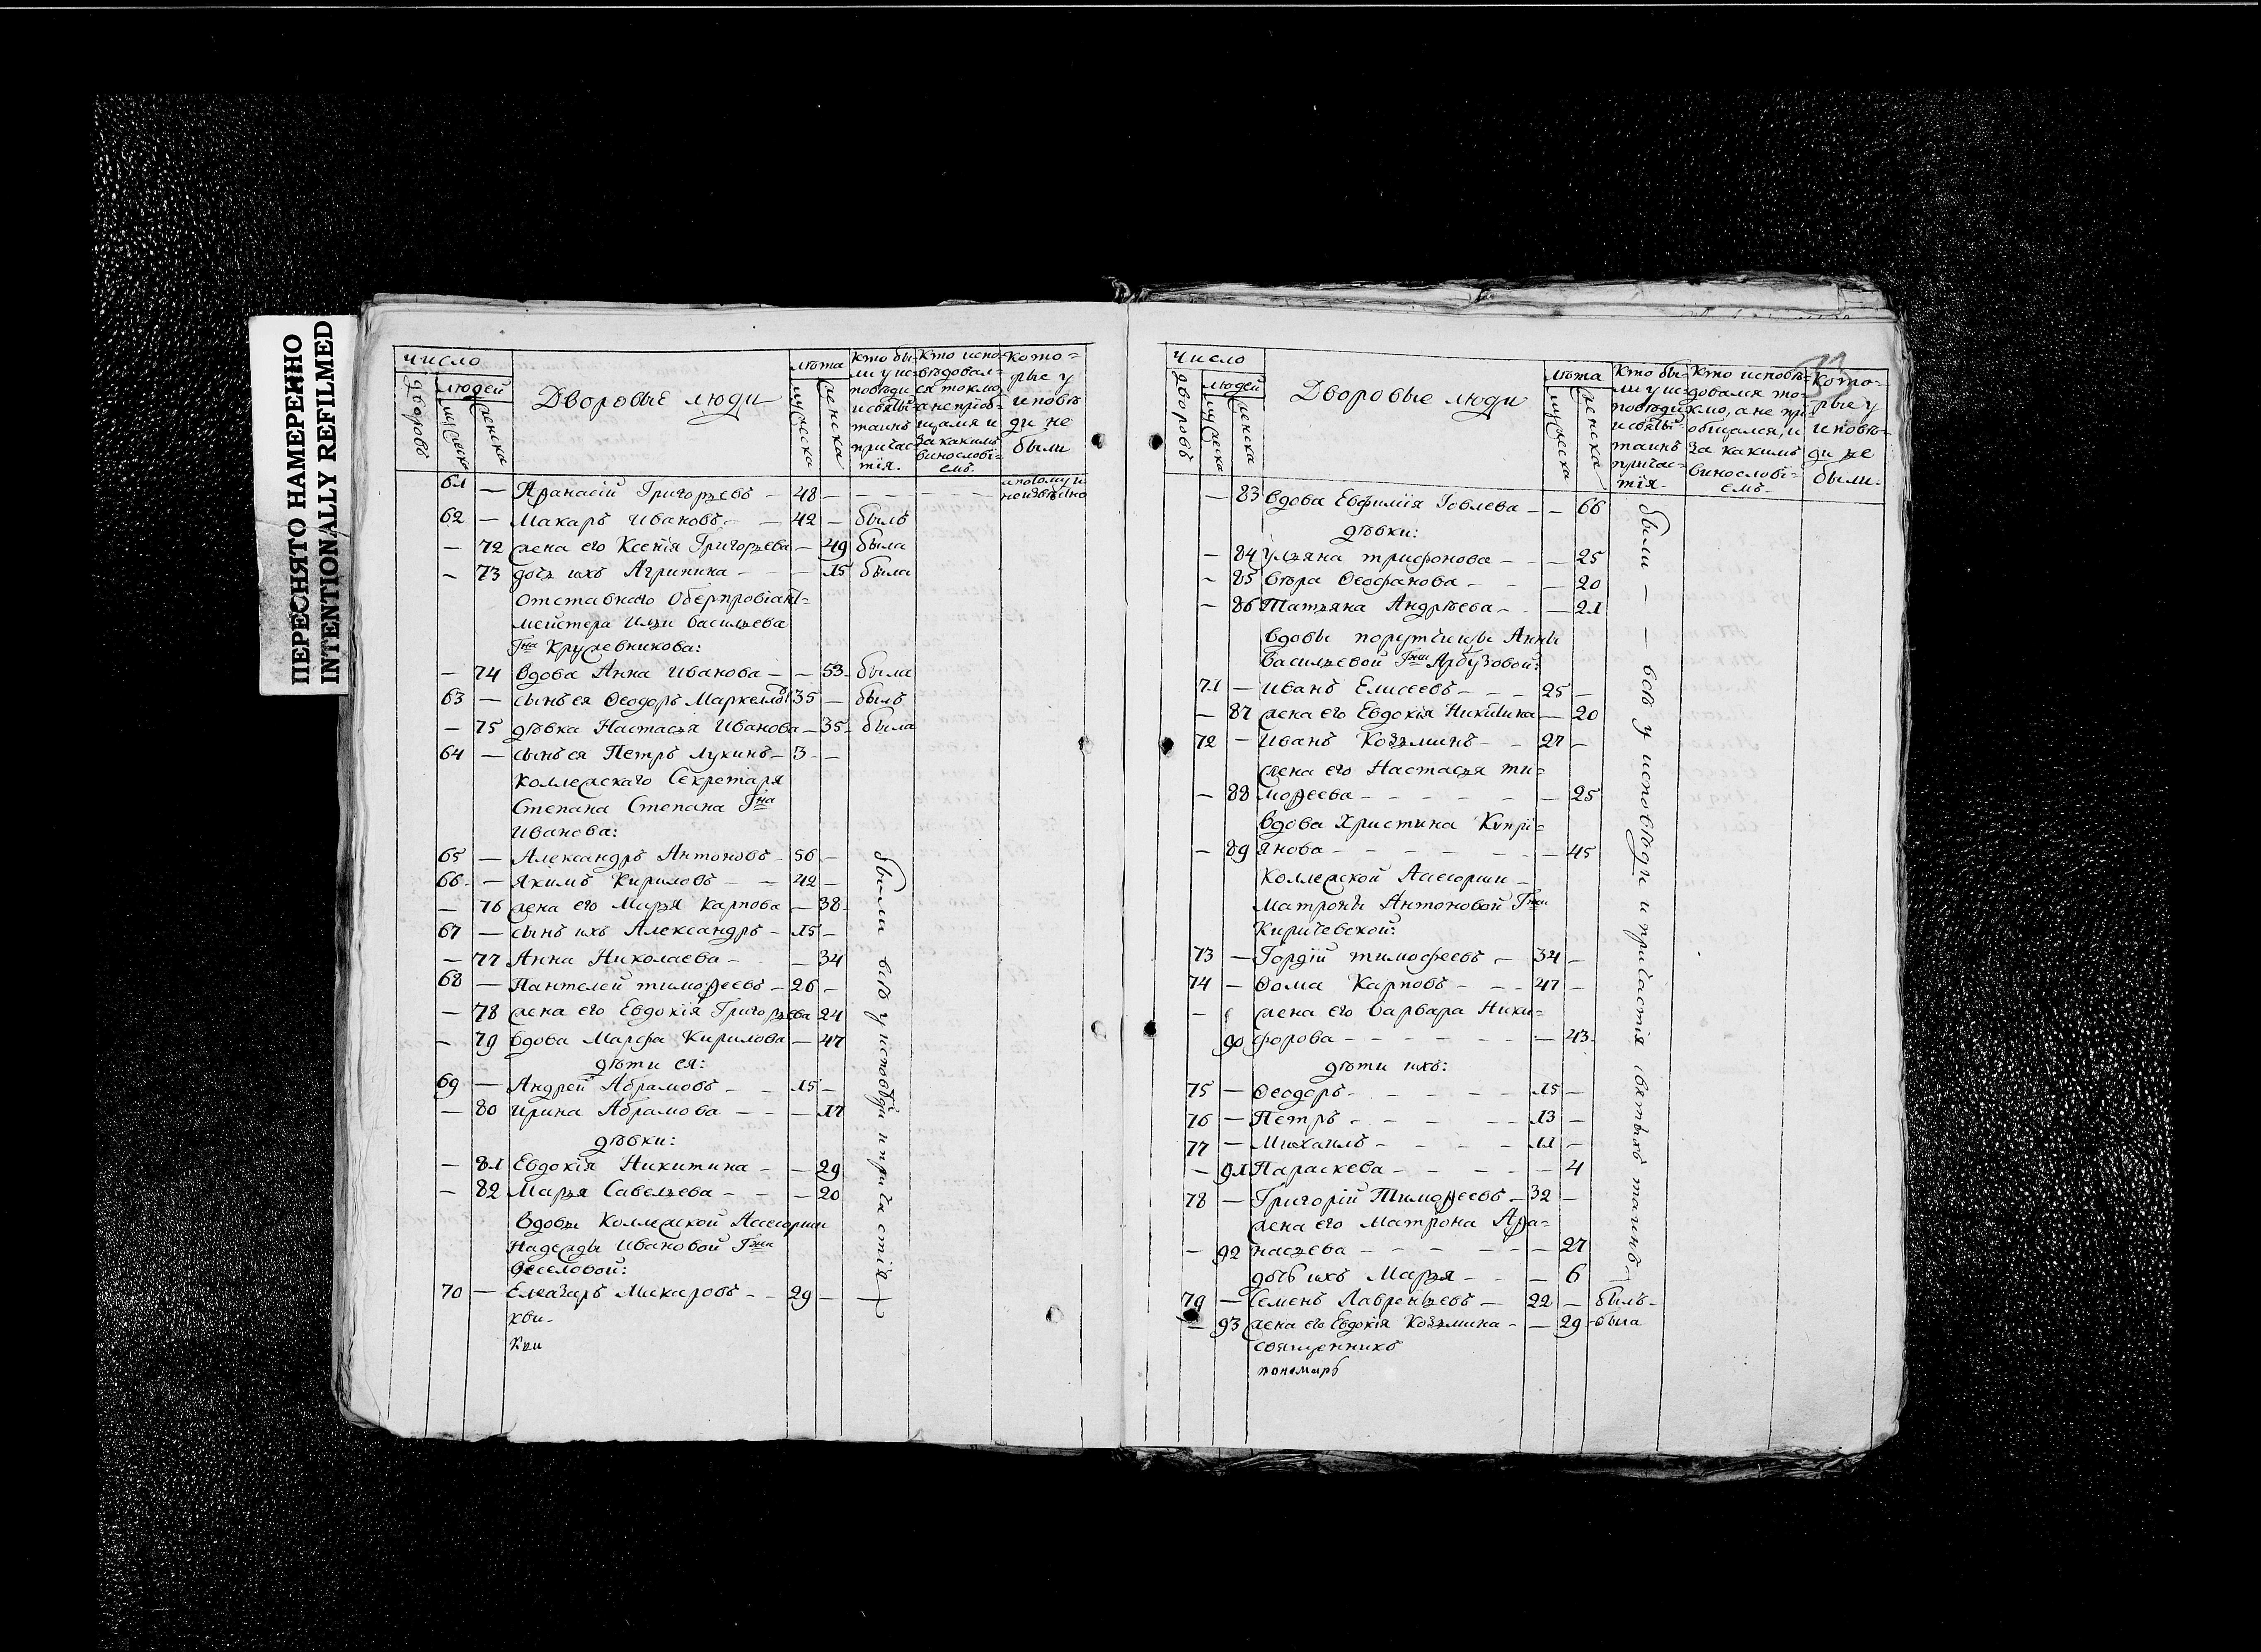 ПЕРЕСНЯТО НАМЕРЕННО
INTENTIONALLY REFILMED
число
дворовъ
людей
мужеска
женска
Дворовые люди
лѣта
мужеска
женска
Кто бы-
ли у ис-
повѣди
и свѧты
таинъ
причас-
тія.
Кто испо-
вѣдовал-
ся токмо
а не пріоб-
щался и
за какимъ
винословї-
емъ.
Кото-
рые у
исповѣ
ди не
были
61 — Афанасій Григорьевъ — 48 —
62 — Макаръ Ивановъ — 42 — былъ
— 72 жена его Ксенія Григорьева — 49 была
— 73 дочь ихъ Агрипина — 15 была
Отставнаго Оберпровіант-
мейстера Ильи Васильева
Гна Кружевникова:
— 74 Вдова Анна Иванова — — 53 — была
63 — сынъ ея Ѳеодоръ Маркеллов 35 — былъ
— 75 дѣвка Настасья Иванова — 35 — была
64 — сынъ ея Петръ Лукинъ — 3 — —
Коллежскаго Секретаря
Степана Степана Гна
Иванова:
65 — Александръ Антоновъ — 56 —
66 — Якимъ Кириловъ — — 42 —
— 76 жена его Марья Карпова — 38 —
67 — сынъ ихъ Александръ — 15 —
— 77 Анна Николаева — — 34
68 — Пантелей Тимофеевъ — 26 —
— 78 жена его Евдокія Григорьева 24
— 79 вдова Марфа Кирилова — 47
дѣти ея:
69 — Андрей Абрамовъ — — 15 —
— 80 Ирина Абрамова — — — 17
дѣвки:
— 81 Евдокія Никитина — — 29
— 82 Марья Савельева — — — 20
Вдовы Коллежской Ассесорши
Надежды Ивановой Гжи
Веселовой:
70 — Елеазаръ Макаровъ — — 29 —
были всѣ у исповѣди и причастія
число
дворовъ
людей
мужеска
женска
Дворовые люди
лѣта
мужеска
женска
Кто бы-
ли у ис-
повѣди
и свѧты
таинъ
причас-
тія.
Кто исповѣ-
довался то-
кмо, а не прі-
общался, и
за какимъ
винословї-
емъ.
Кото-
рые у
исповѣ-
ди не
были.
— 83 Вдова Евфимія Іовлева — — 66
дѣвки:
— 84 Ульяна Трифонова — — — 25
— 85 Вѣра Ѳеофанова — — — 20
— 86 Татьяна Андрѣева — — 21
Вдовы порутчицы Анны
Васильевой Гжи Арбузовой:
71 — Иванъ Елисеевъ — — — 25 —
— 87 жена его Евдокія Никитина — 20
72 — Иванъ Козьминъ — — 27 —
жена его Настасья Ти-
— 88 мофеева — — — — — — 25
Вдова Христина Кипрі-
— 89 янова — — — — — — — 45
Коллежской Ассесорши —
Матроны Антоновой Гжи
Киричевской:
73 — Гордій Тимофеевъ — 34 —
74 — Ѳома Карповъ — — — 47 —
— жена его Варвара Ники-
90 форова — — — — — — — 43
дѣти ихъ:
75 — Ѳеодоръ — — — — — 15 —
76 — Петръ — — — — — — 13 —
77 — Михаилъ — — — — — 11 —
— 91 Параскева — — — — — 4
78 — Григорій Тимофеевъ — 32 —
жена его Матрона Афа-
— 92 насьева — — — — — — 27
дочь ихъ Марья — — — 6
79 — Семенъ Лаврентьевъ — 22 — былъ —
— 93 жена его Евдокія Козьмина — — 29 — была
священникъ
пономарь
были — — всѣ у исповѣди и причастія святыхъ таинъ —